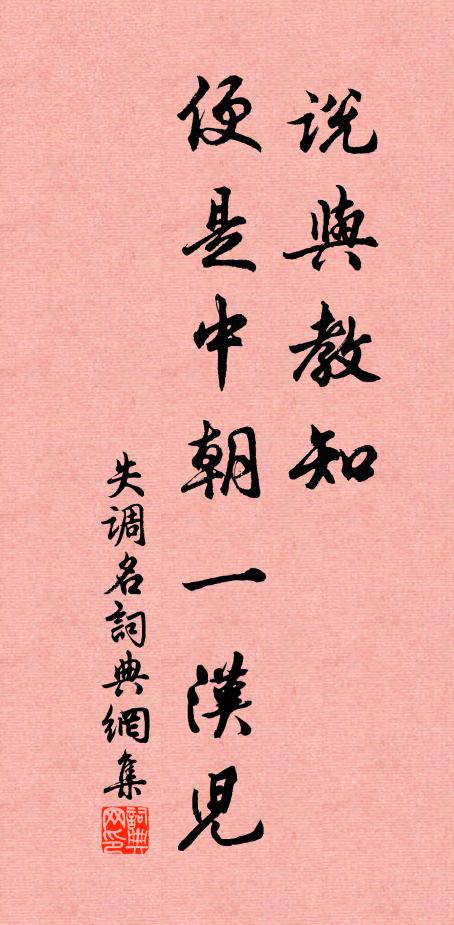 説與教知
便是中朝一漢兒
失調名詞典網集
詞典网印